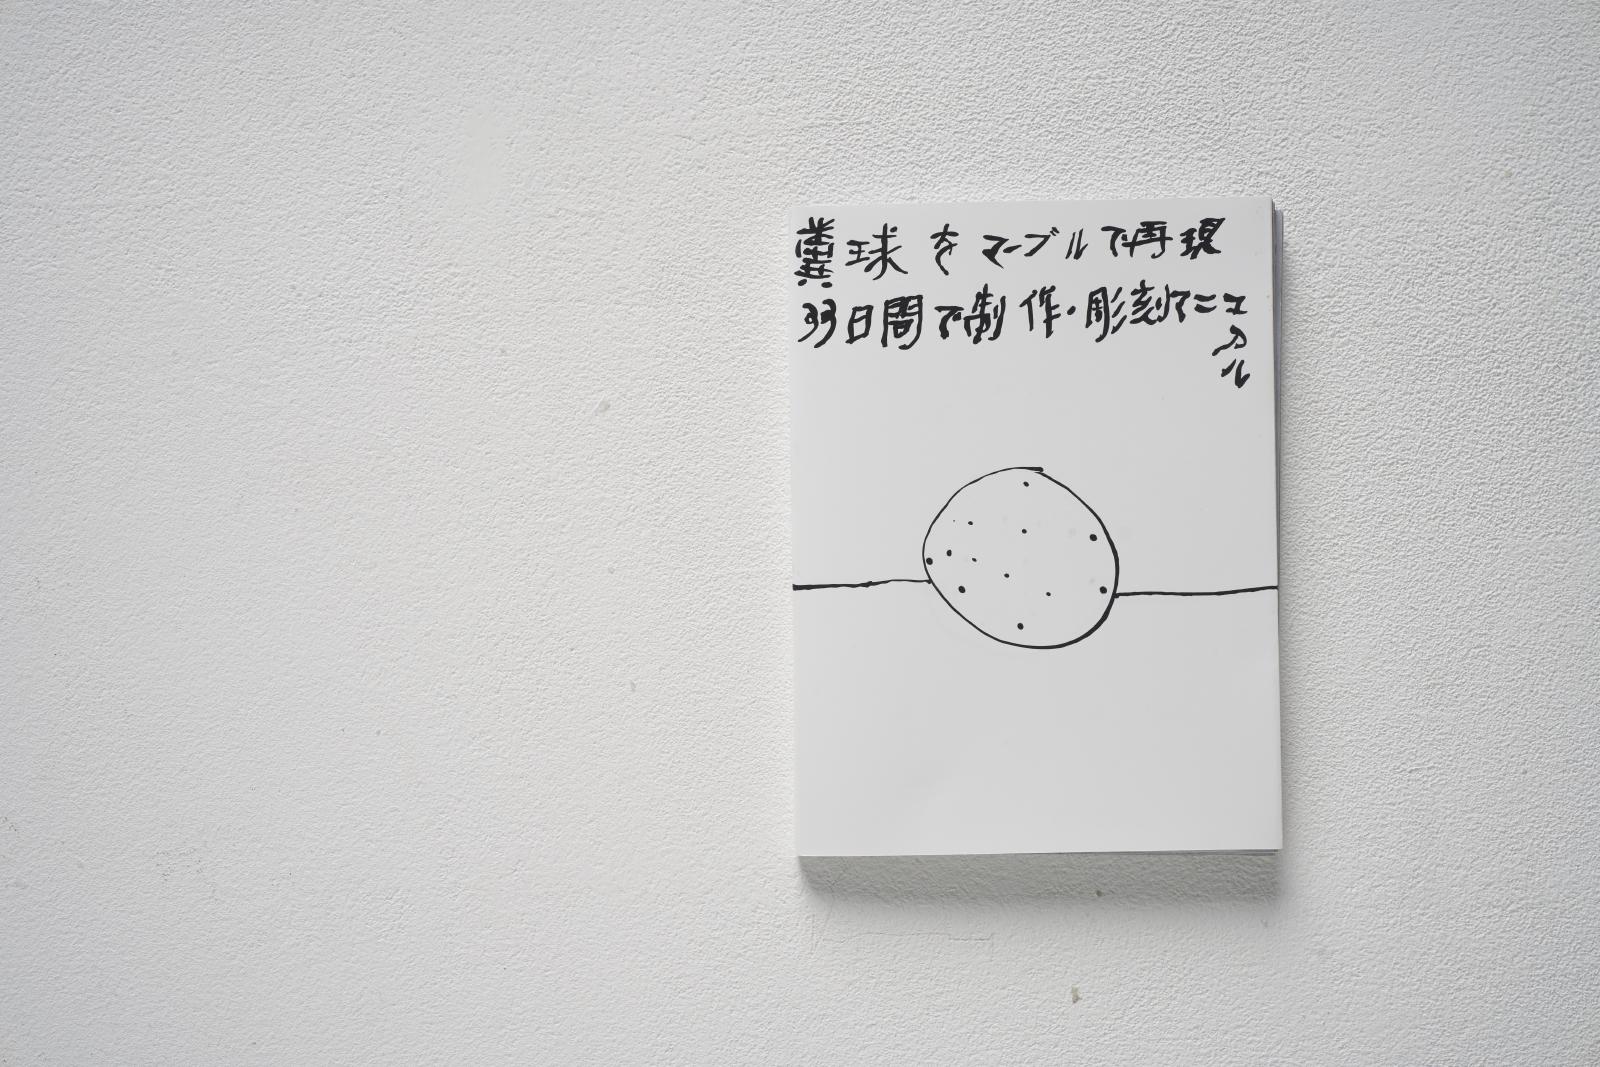 糞球をマーブルで再現
33日間で制作・彫刻マニュアル